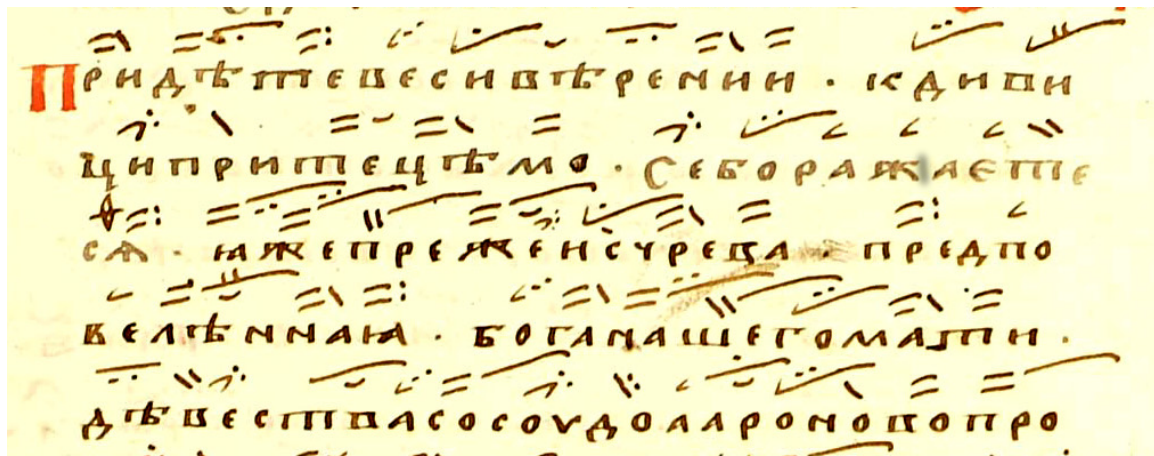 Придѣте веси вѣрении · к дѣви
ци притецѣмо · Се бо ражаѥте
сѧ · ꙗже преже ис чрева · предпо
велѣннаꙗ · бога нашего мати ·
дѣвества сосоудо ароново про